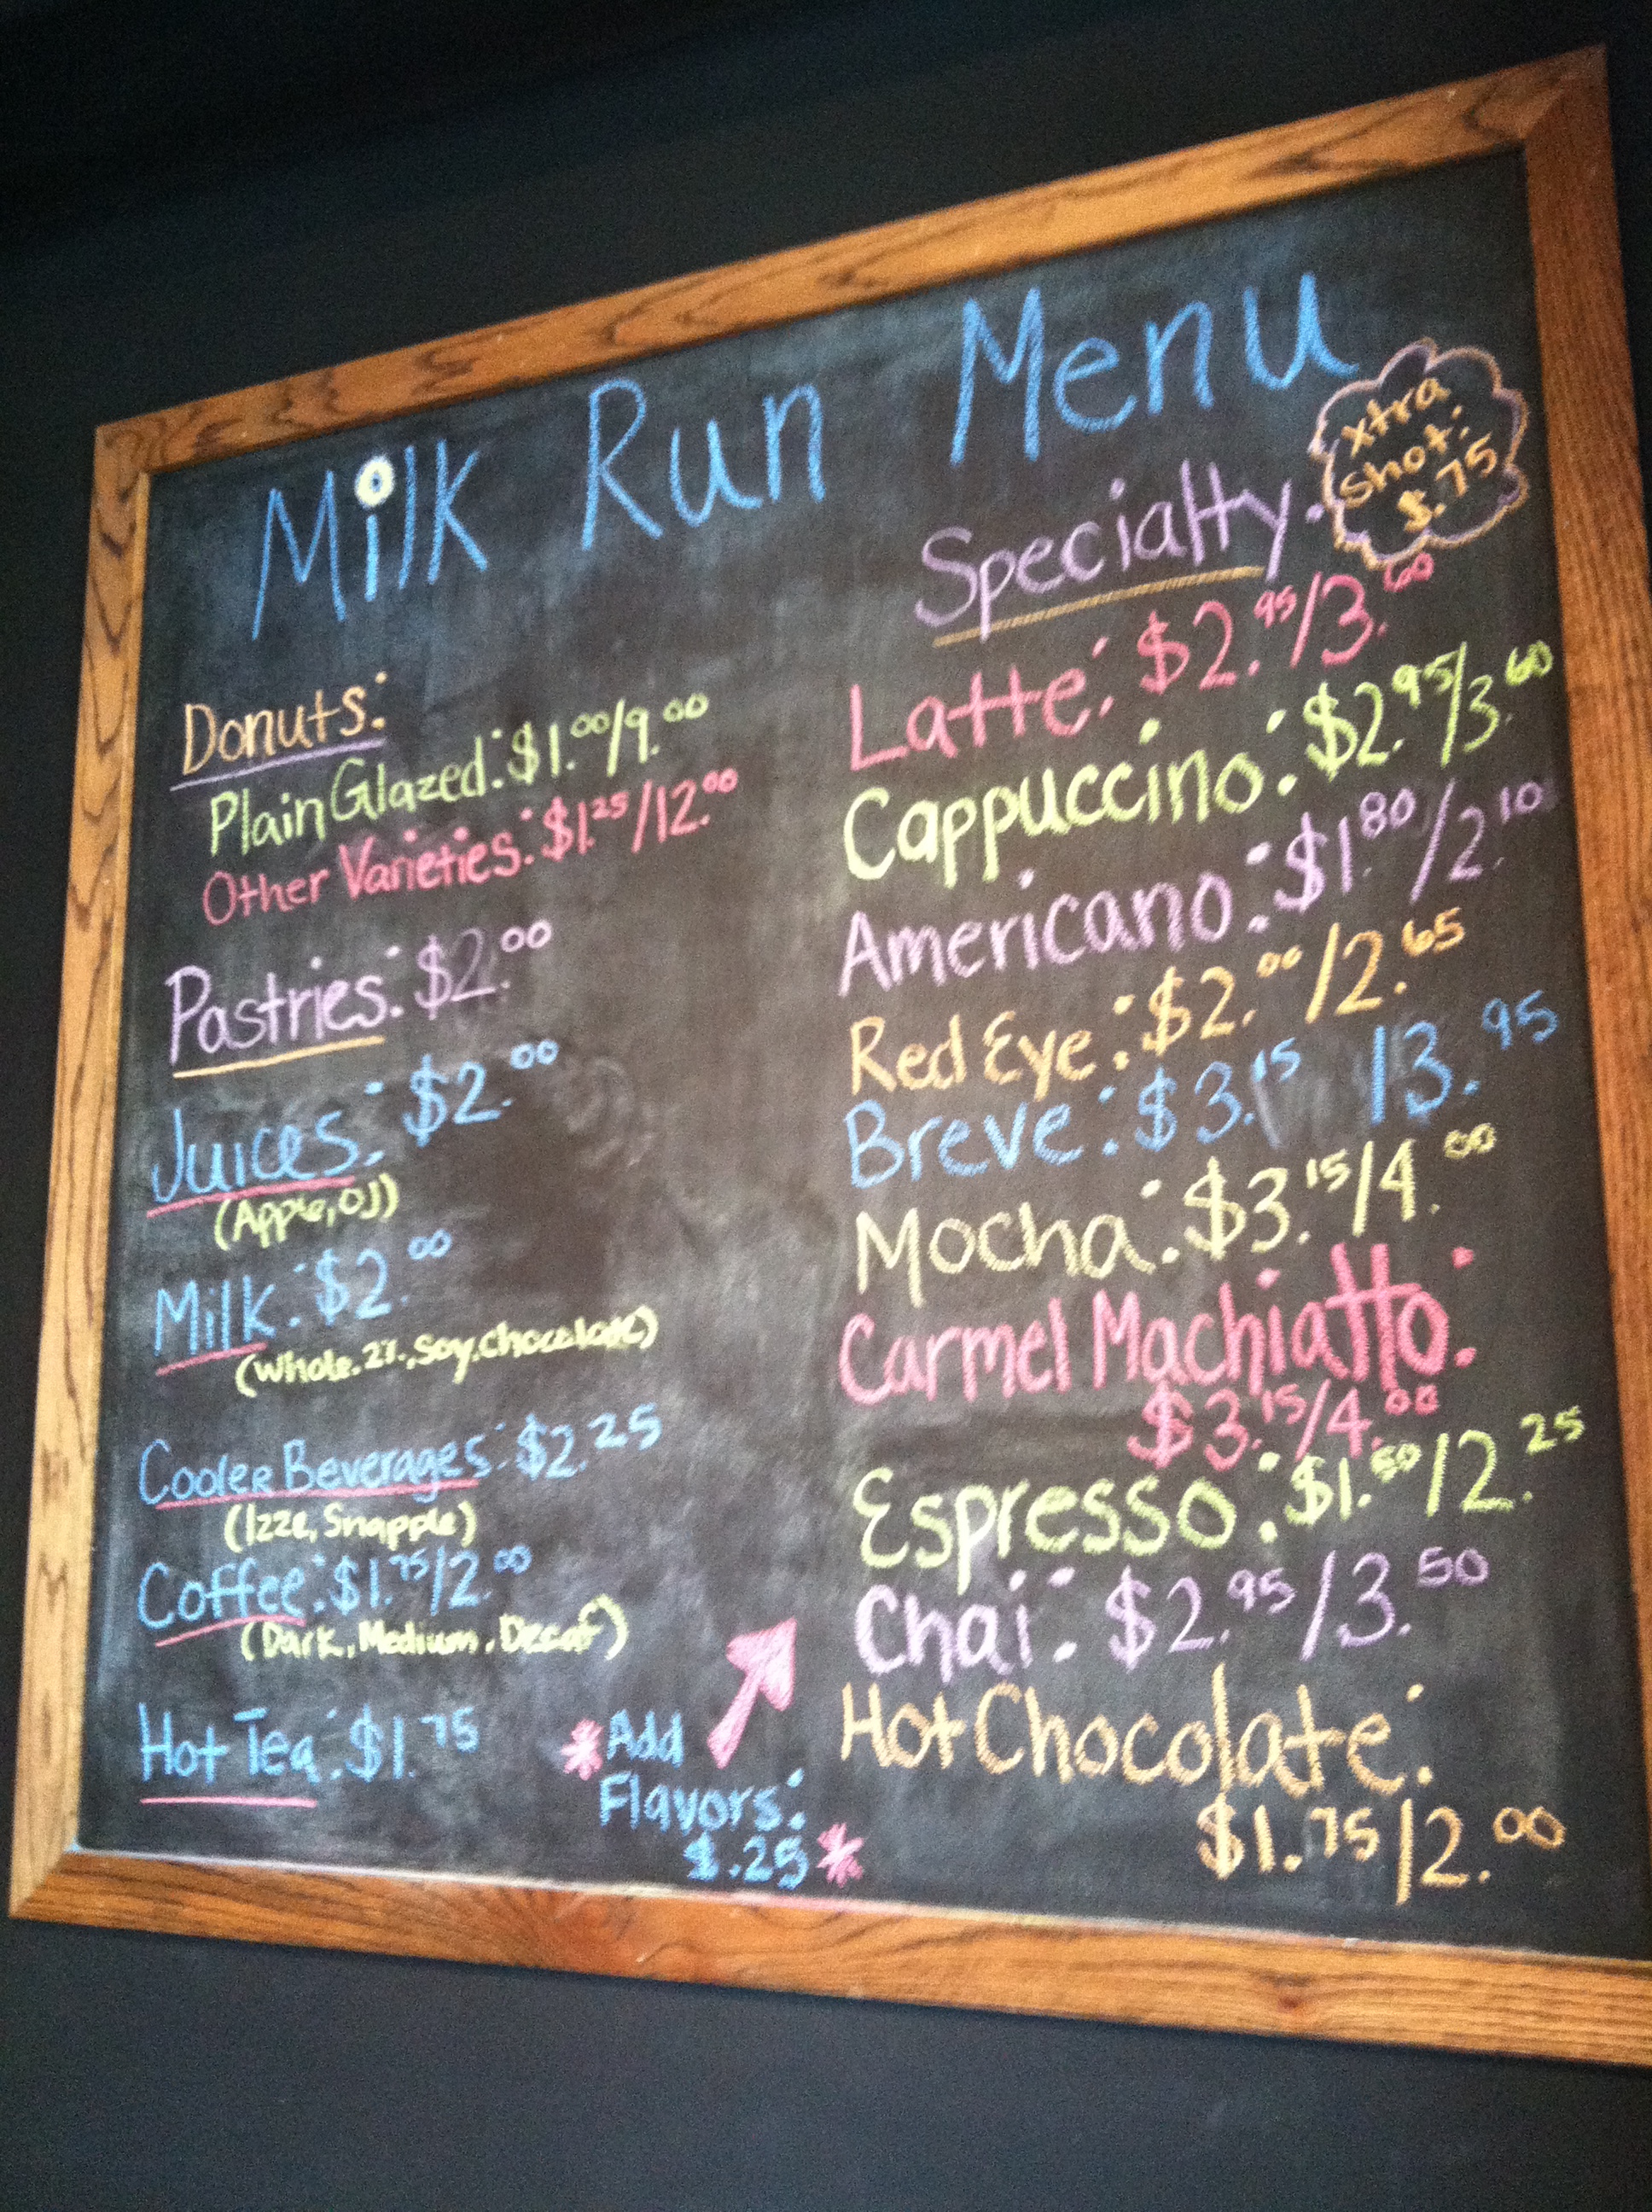 Milk Run Menu
Donuts:
Plain Glazed: $1.00/9.00
Other Varieties: $1.25/12.00
Pastries: $2.00
Juices: $2.00
(Apple, OJ)
Milk: $2.00
(Whole, 2%, Soy, Chocolate)
Cooler Beverages: $2.25
(Izze, Snapple)
Coffee: $1.75/2.00
(Dark, Medium, Decaf)
Hot Tea: $1.75
*Add
Flavors:
$.25*
Specialty:
xtra
shot:
$.75
Latte: $2.95/3.60
Cappuccino: $2.95/3.60
Americano: $1.80/2.10
Red Eye: $2.00/2.65
Breve: $3.15/3.95
Mocha: $3.15/4.00
Carmel Machiatto:
$3.15/4.00
Espresso: $1.50/2.25
Chai: $2.95/3.50
Hot Chocolate:
$1.75/2.00